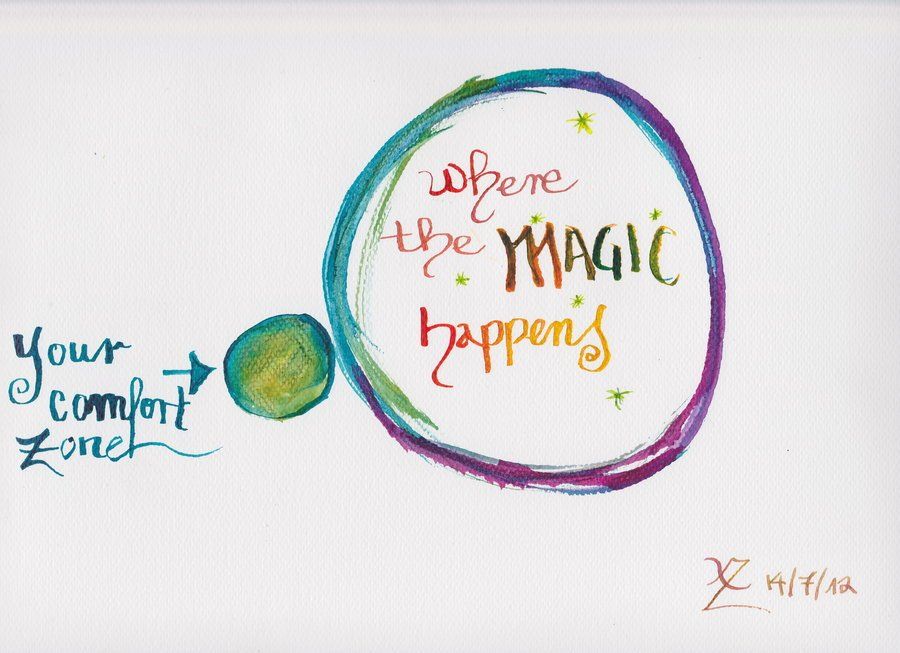 Your
comfort
zone
where
the MAGIC
happens
XZ 14/7/12